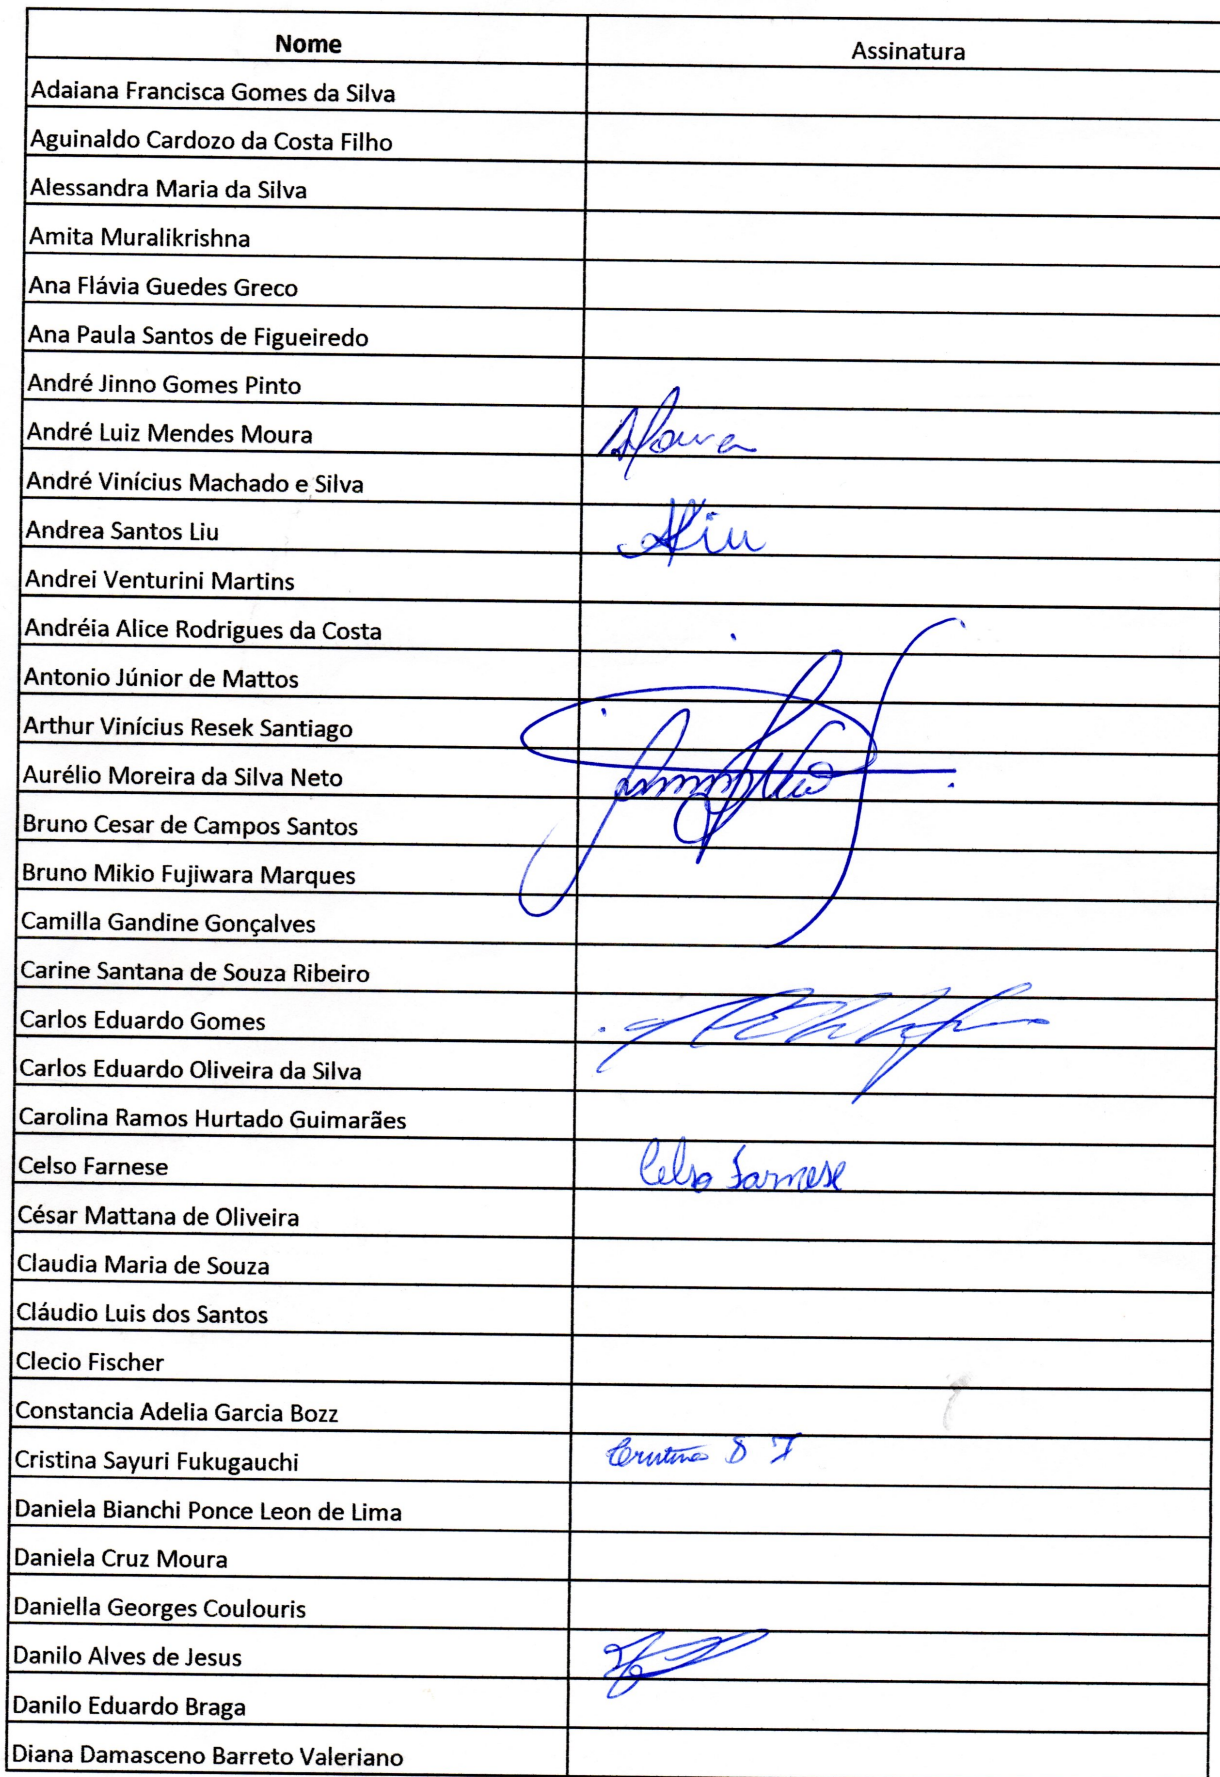 Nome Assinatura
Adaiana Francisca Gomes da Silva
Aguinaldo Cardozo da Costa Filho
Alessandra Maria da Silva
Amita Muralikrishna
Ana Flávia Guedes Greco
Ana Paula Santos de Figueiredo
André Jinno Gomes Pinto
André Luiz Mendes Moura AMoura
André Vinícius Machado e Silva
Andrea Santos Liu ALiu
Andrei Venturini Martins
Andréia Alice Rodrigues da Costa
Antonio Júnior de Mattos
Arthur Vinícius Resek Santiago
Aurélio Moreira da Silva Neto
Bruno Cesar de Campos Santos
Bruno Mikio Fujiwara Marques
Camilla Gandine Gonçalves
Carine Santana de Souza Ribeiro
Carlos Eduardo Gomes
Carlos Eduardo Oliveira da Silva
Carolina Ramos Hurtado Guimarães
Celso Farnese Celso Farnese
César Mattana de Oliveira
Claudia Maria de Souza
Cláudio Luis dos Santos
Clecio Fischer
Constancia Adelia Garcia Bozz
Cristina Sayuri Fukugauchi Cristina S F
Daniela Bianchi Ponce Leon de Lima
Daniela Cruz Moura
Daniella Georges Coulouris
Danilo Alves de Jesus
Danilo Eduardo Braga
Diana Damasceno Barreto Valeriano